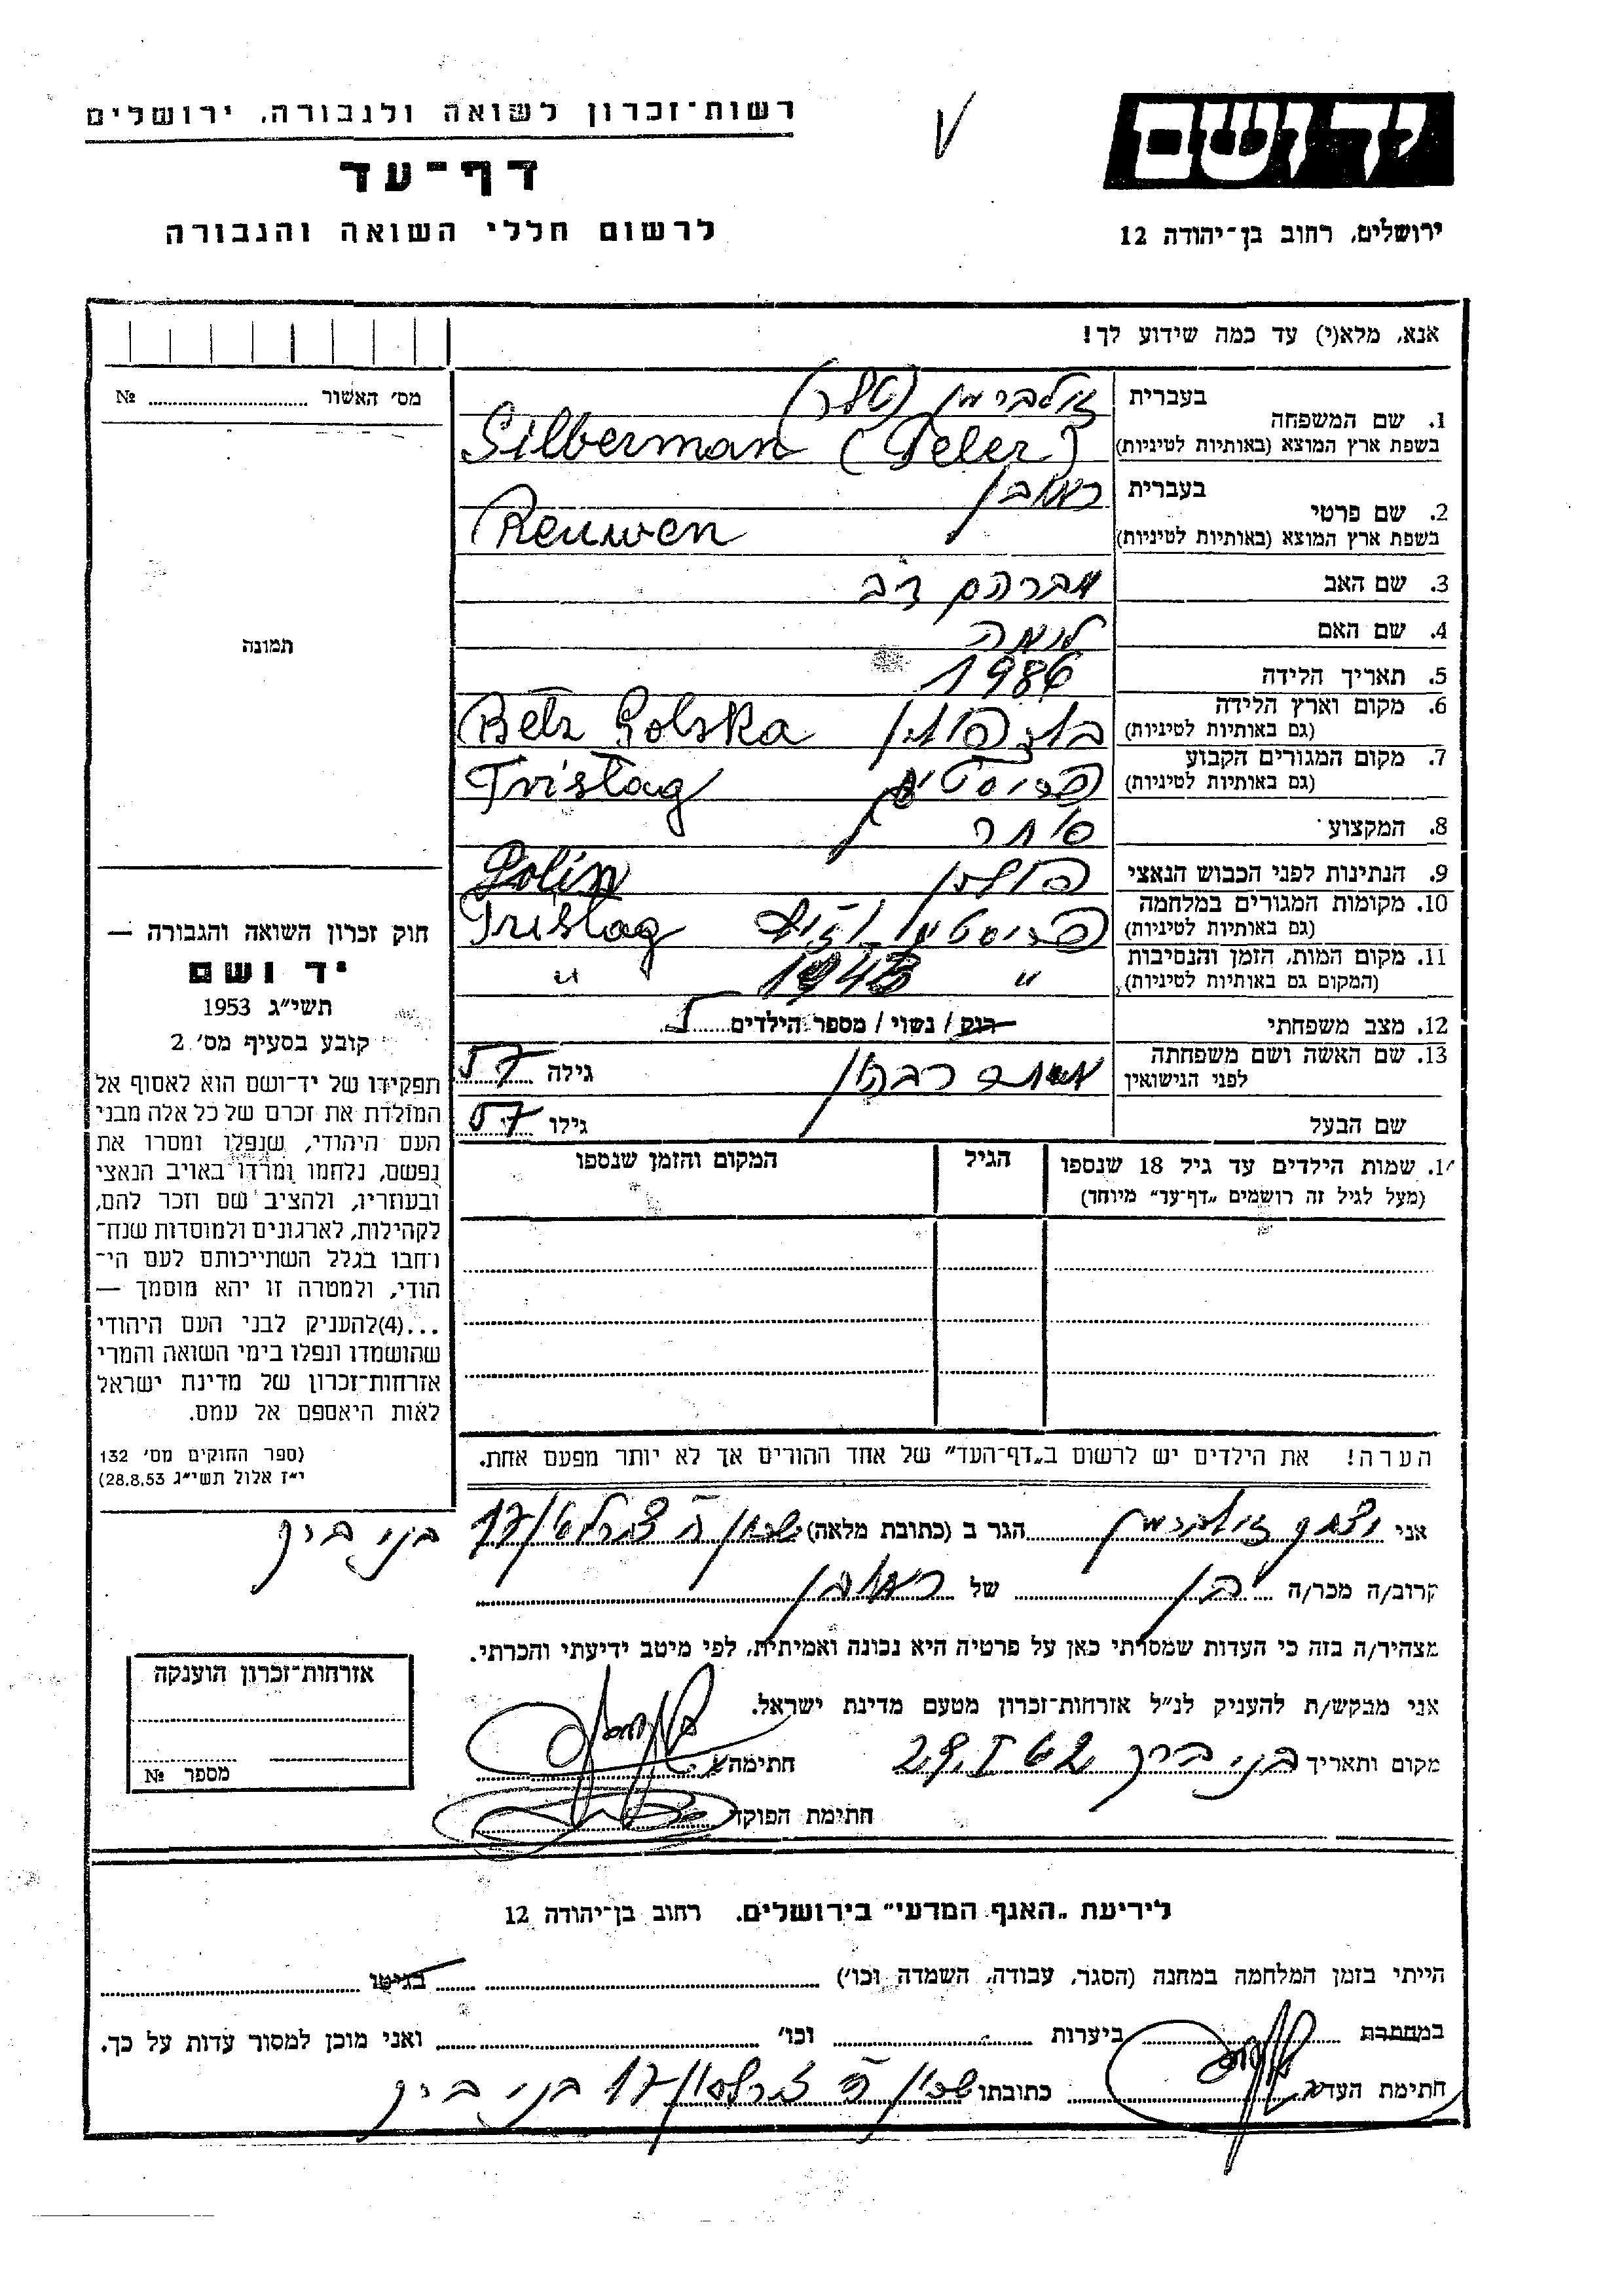 רשות־זכרון לשואה ולגבורה, ירושלים
דף־עד
לרשום חללי השואה והגבורה
יד ושם
ירושלים, רחוב בן־יהודה 12
אנא, מלא(י) עד כמה שידוע לך!
מס' האשור № 
תמונה
חוק זכרון השואה והגבורה —
יד ושם
תשי״ג 1953
קובע בסעיף מס' 2
תפקידו של יד־ושם הוא לאסוף אל
המולדת את זכרם של כל אלה מבני
העם היהודי, שנפלו ומסרו את
נפשם, נלחמו ומרדו באויב הנאצי
ובעוזריו, ולהציב שם וזכר להם,
לקהילות, לארגונים ולמוסדות שנח־
רחבו בגלל השתייכותם לעם הי־
הודי, ולמטרה זו יהא מוסמך —
...(4)להעניק לבני העם היהודי
שהושמדו ונפלו בימי השואה והמרי
אזרחות־זכרון של מדינת ישראל
לאות היאספם אל עמם.
(ספר החוקים מס' 132
י״ז אלול תשי״ג 28.8.53)
בעברית זילברמן (טלר)
1. שם המשפחה
בשפת ארץ המוצא (באותיות לטיניות) Silberman (Teler)
בעברית ראובן
2. שם פרטי
בשפת ארץ המוצא (באותיות לטיניות) Reuwen
3. שם האב אברהם דב
4. שם האם
5. תאריך הלידה 1986
6. מקום וארץ הלידה
(גם באותיות לטיניות) Betz Polska
7. מקום המגורים הקבוע
(גם באותיות לטיניות) Tristag
8. המקצוע סוחר
9. הנתינות לפני הכבוש הנאצי פולין Polin
10. מקומות המגורים במלחמה
(גם באותיות לטיניות) Tristag
11. מקום המות, הזמן והנסיבות
(המקום גם באותיות לטיניות) " 1943 "
12. מצב משפחתי רוק / נשוי / מספר הילדים 5
13. שם האשה ושם משפחתה
לפני הנישואין גילה 57
שם הבעל גילו 57
14. שמות הילדים עד גיל 18 שנספו הגיל המקום והזמן שנספו
(מעל לגיל זה רושמים „דף־עד״ מיוחד)
הערה! את הילדים יש לרשום ב„דף־העד״ של אחד ההורים אך לא יותר מפעם אחת.
אני יצחק זילברמן הגר ב (כתובת מלאה) שכון ה 17 בני ברק
קרוב/ה מכר/ה בן של ראובן
מצהיר/ה בזה כי העדות שמסרתי כאן על פרטיה היא נכונה ואמיתית, לפי מיטב ידיעתי והכרתי.
אני מבקש/ת להעניק לנ״ל אזרחות־זכרון מטעם מדינת ישראל.
מקום ותאריך בני ברק חתימה
חתימת הפוקד
אזרחות־זכרון הוענקה
מספר №
לידיעת „האגף המדעי״ בירושלים, רחוב בן־יהודה 12
הייתי בזמן המלחמה במחנה (הסגר, עבודה, השמדה וכו') בגיטו
במחתרת ביערות וכו' ואני מוכן למסור עדות על כך.
חתימת העד כתובתו שכון ה 17 בני ברק